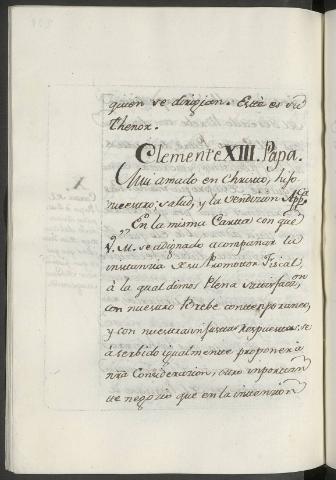 quien se dirigian. Este es su
Thenor.
Clemente XIII. Papa.
Mui amado en Christo, hijo
nuestro; salud, y la Vendizion App.ca
En la misma Carta con que
V. M. se à dignado acompañar la
instancia de su Promotor Fiscal,
à la qual dimos Plena satisfac.on
con nuestro Brebe contemporaneo,
y con nuestras infustas Respuestas, se
a serbido igualmente proponer à
nra Consideracion, otro importan
te negocio que en la intenzion